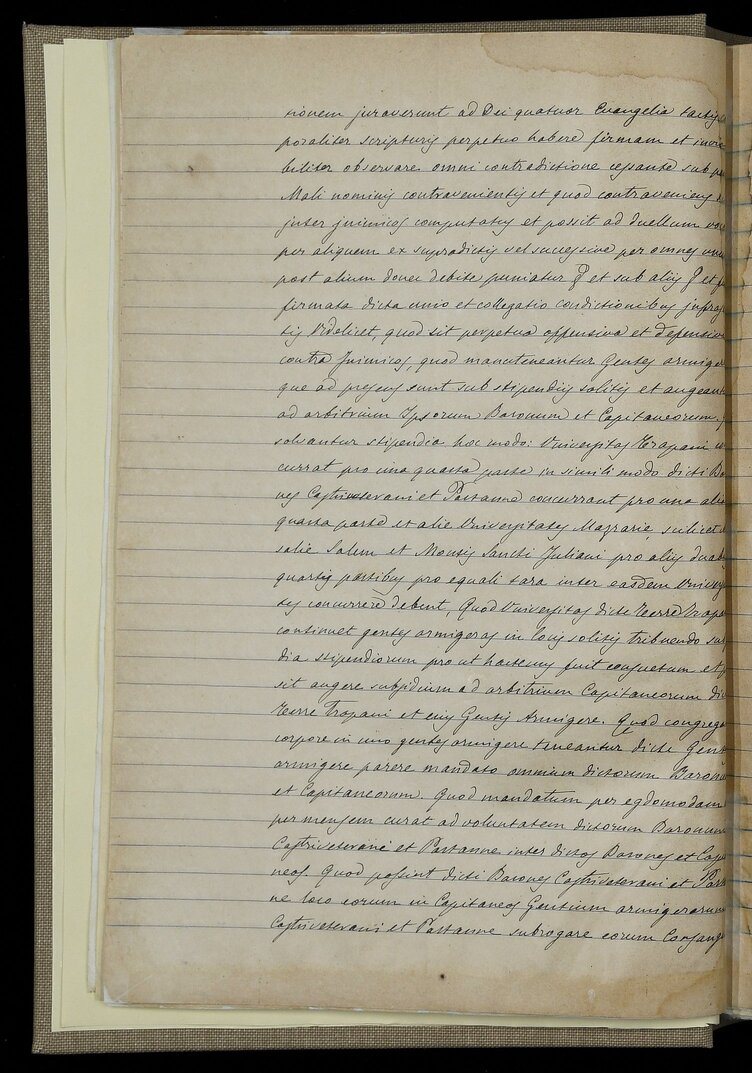 nionem juraverunt ad Dei quatuor Evangelia tactis
poraliter scripturis perpetuo habere firmam et invio
biliter observare omni contradictione cessante sub p
Mali nominis contravenientis et quod contraveniens
inter inimicos computatus et possit ad duellum vo
per aliquem ex supradictis vel successive per omnes un
post alium donec debite puniatur et sub aliis et
firmata dicta unio et collegatio condictionibus infras
tis Videlicet, quod sit perpetua offensiva et defensiva
contra Inimicos, quod manuteneantur Gentes armiger
que ad presens sunt sub stipendiis solitis et augeant
ad arbitrium Ipsorum Baronum et Capitaneorum
solvantur stipendia hoc modo: Universitas Trapani
currat pro una quarta parte in simili modo dicti Ba
nes Castriveterani et Partanne concurrant pro una alia
quarta parte et alie Universitates Mazarie, scilicet
salie Salem et Montis Sancti Juliani pro aliis duab
quartis partibus pro equali tara inter easdem Univers
tes concurrere debent, Quod Universitas dicte Terre Trapa
continuet gentes armigeras in locis solitis tribuendo su
dia stipendiorum prout hactenus fuit consuetum et
sit augere subsidium ad arbitrium Capitaneorum dic
Terre Trapani et eius Gentis Armigere. Quod congrega
corpore in uno gentes armigere teneantur dicte Gent
armigere parere mandato omnium dictorum Barone
et Capitaneorum. Quod mandatum per egdomodam
per mensem curat ad voluntatem dictorum Baronum
Castriveterani et Partanne inter dictos Barones et Capi
neos. Quod possint dicti Barones Castriveterani et Part
ne loco eorum in Capitaneos Gentium armigerarum
Castriveterani et Partanne subrogare eorum Consang